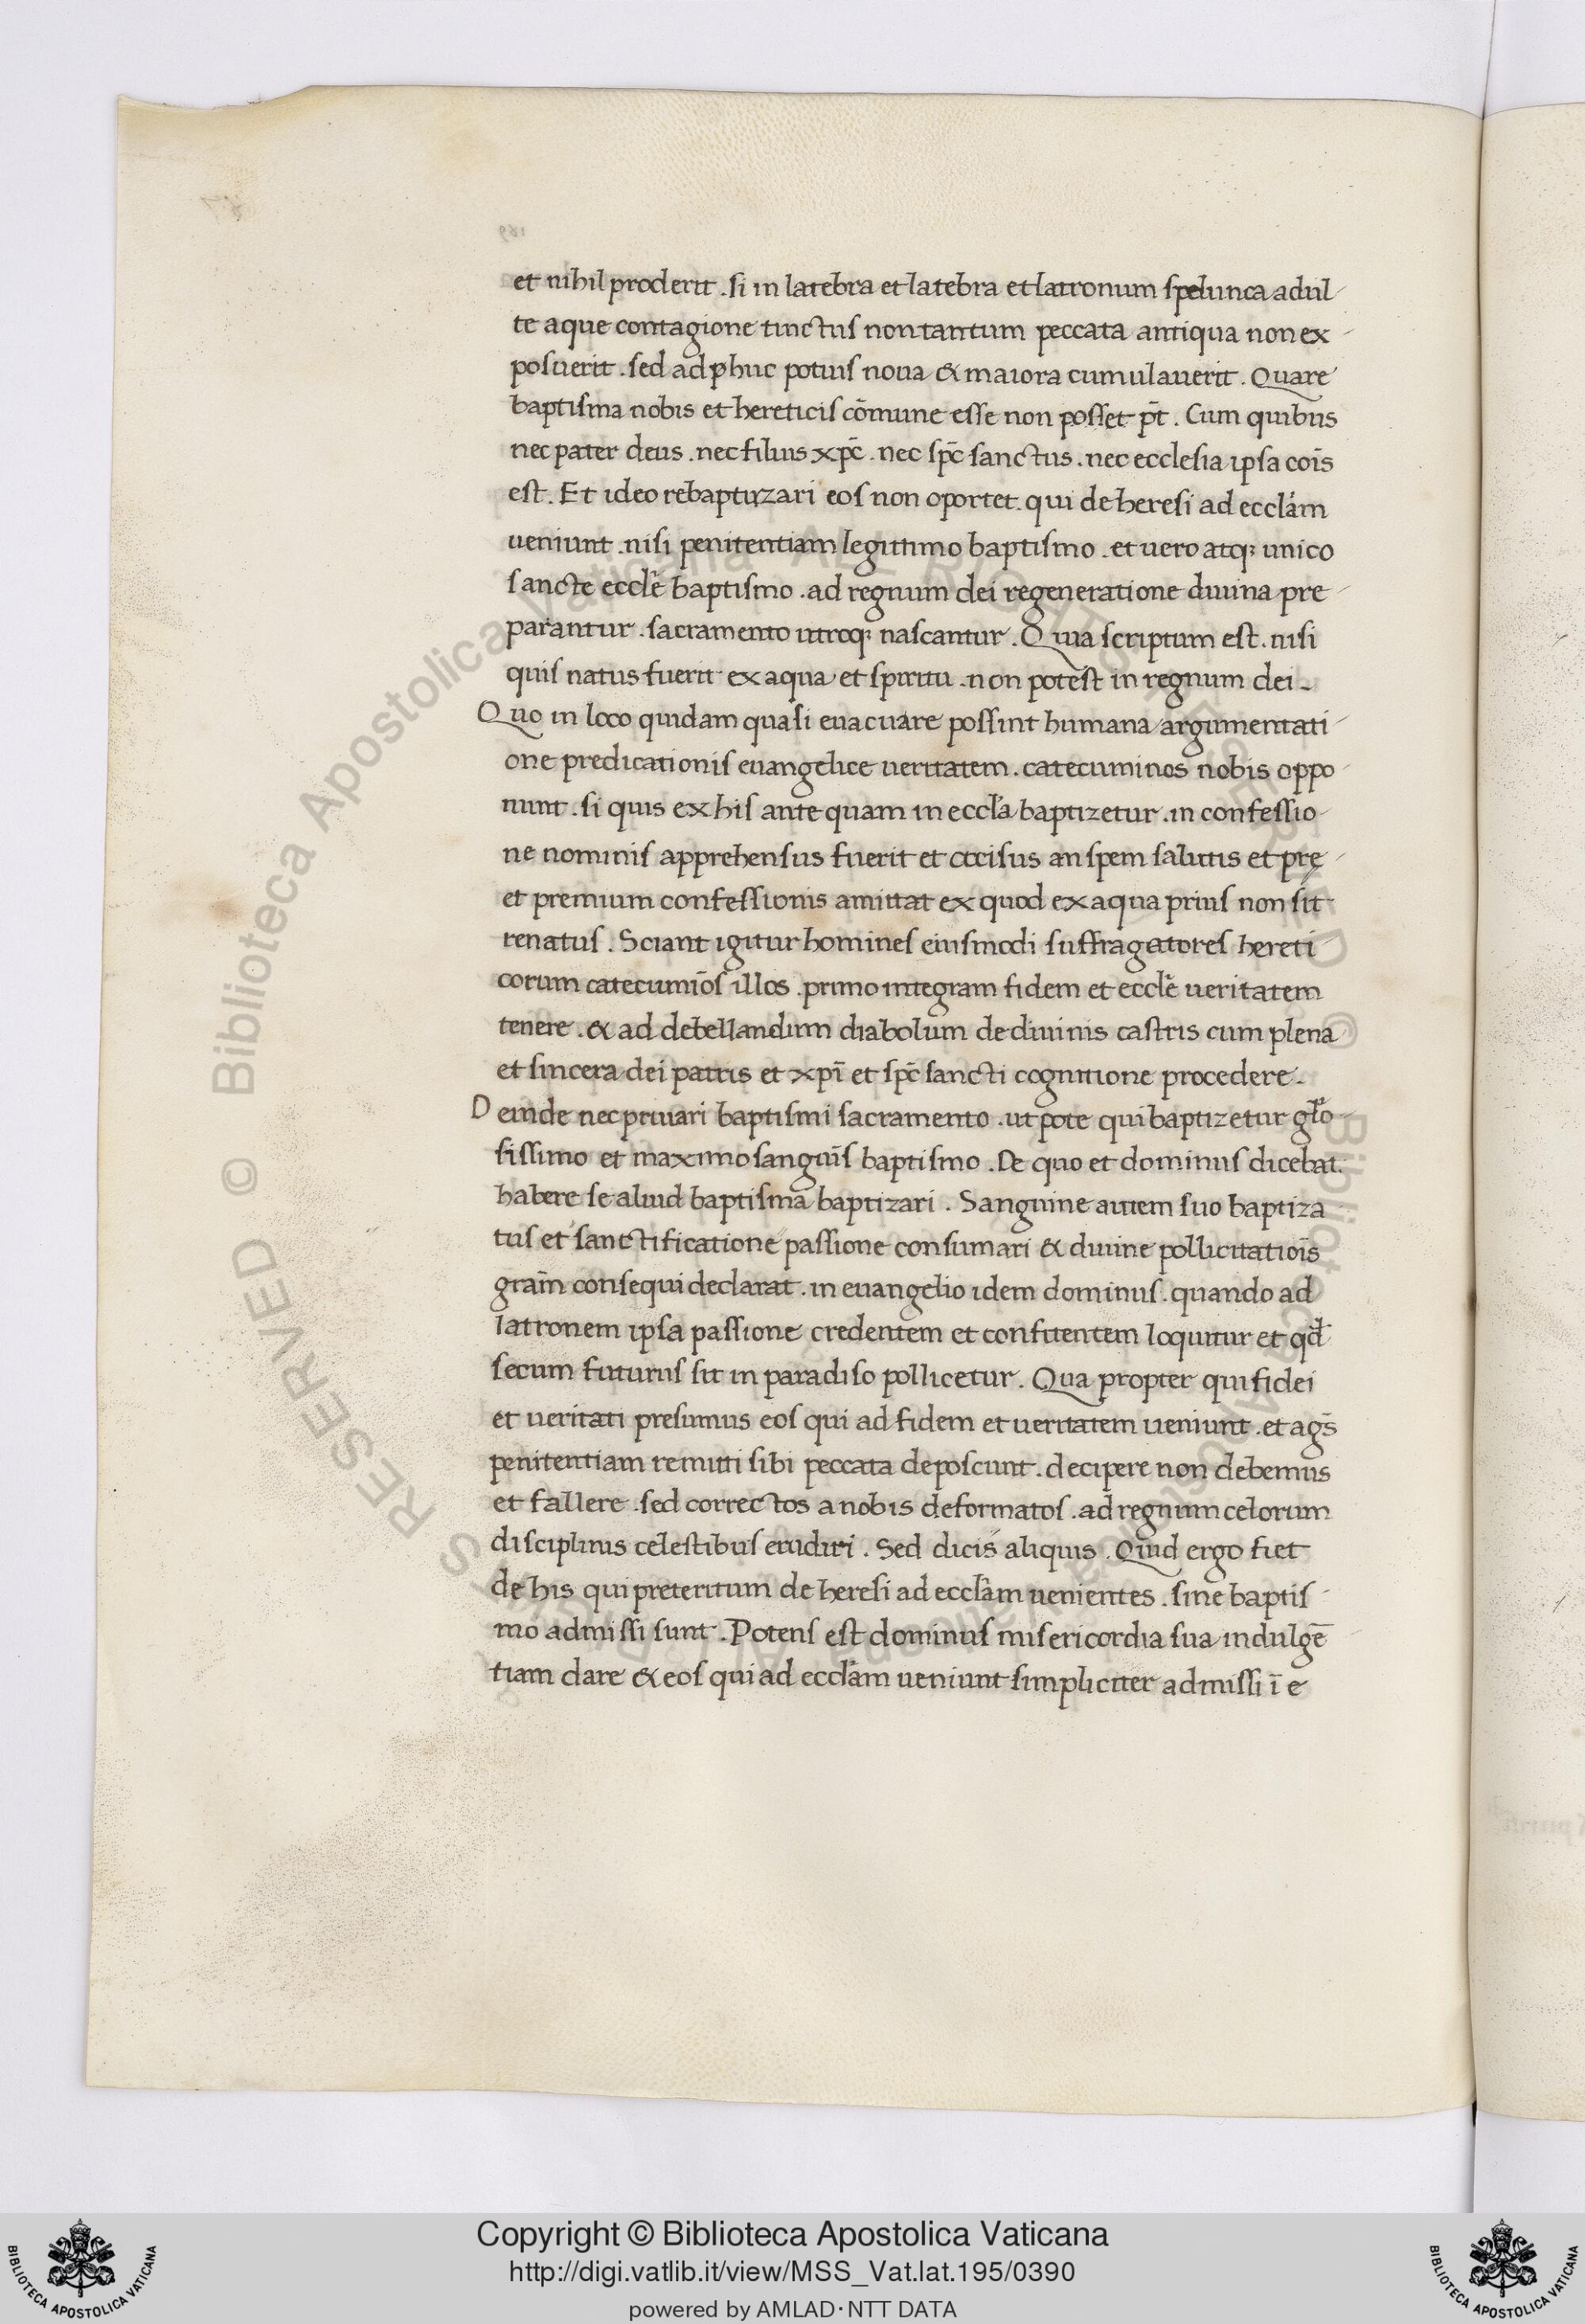 et nihil proderit . si in latebra et latebra et latronum spelunca adul
te aque contagione tinctus non tantum peccata antiqua non ex
posuerit . sed adphuc potius noua & maiora cumulauerit . Quare
baptisma nobis et hereticis cōmune esse non posset pt̄ . Cum quibus
nec pater deus . nec filius xpc̄ . nec spc̄ sanctus . nec ecclesia ipsa coīs
est . Et ideo rebaptizari eos non oportet . qui de heresi ad eccl̄am
ueniunt . nisi penitentiam legittimo baptismo . et uero atq; unico
sancte eccl̄e baptismo . ad regnum dei regeneratione diuina pre
parantur . sacramento utroq; nascantur . Quia scriptum est . nisi
quis natus fuerit ex aqua et spiritu . non potest in regnum dei .
Quo in loco quidam quasi euacuare possint humana argumentati
one predicationis euangelice ueritatem . catecuminos nobis oppo
nunt . si quis ex his ante quam in eccl̄a baptizetur . in confessio
ne nominis apprehensus fuerit et occisus an spem salutis et prę
et premium confessionis amittat ex quod ex aqua prius non sit
renatus . Sciant igitur homines eiusmodi suffragatores hereti
corum catecumīos illos . primo integram fidem et eccl̄e ueritatem
tenere . & ad debellandum diabolum de diuinis castris cum plena
et sincera dei patris et xpī et spc̄ sancti cognitione procedere .
Deinde nec priuari baptismi sacramento . ut pote qui baptizetur gl̄o
sissimo et maximo sanguīs baptismo . De quo et dominus dicebat .
habere se aliud baptisma baptizari . Sanguine autem suo baptiza
tus et sanctificatione passione consumari & diuine pollicitatioīs
grām consequi declarat . in euangelio idem dominus . quando ad
latronem ipsa passione credentem et confitentem loquitur et qd̄
secum futurus sit in paradiso pollicetur . Qua propter qui fidei
et ueritati presumus eos qui ad fidem et ueritatem ueniunt . et ags̄
penitentiam remitti sibi peccata deposcunt . decipere non debemus
et fallere . sed correctos a nobis deformatos . ad regnum celorum
disciplinis celestibus erudiri . Sed dicis aliquis . Quid ergo fiet
de his qui preteritum de heresi ad eccl̄am uenientes . sine baptis
mo admissi sunt . Potens est dominus misericordia sua indulgē
tiam dare & eos qui ad eccl̄am ueniunt simpliciter admissi ī e
Copyright © Biblioteca Apostolica Vaticana
http://digi.vatlib.it/view/MSS_Vat.lat.195/0390
powered by AMLAD·NTT DATA